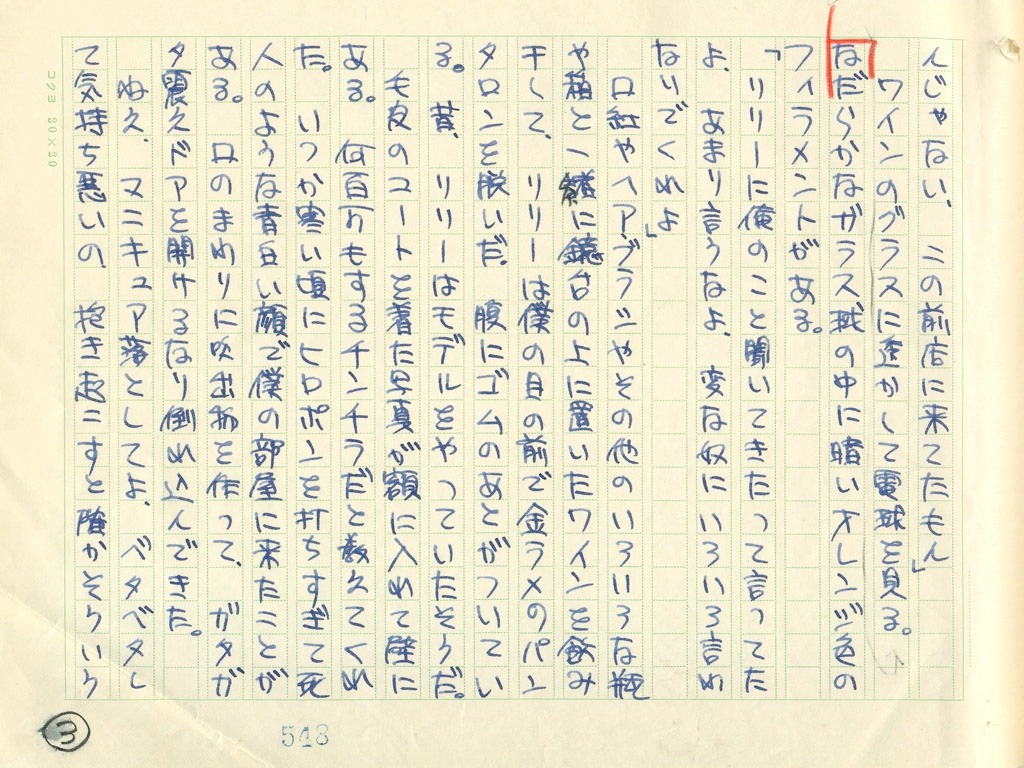 んじゃない、この前店に来てたもん」
ワインのグラスに透かして電球を見る。
なだらかなガラス球の中に暗いオレンジ色の
フィラメントがある。
「リリーに俺のこと聞いてきたって言ってた
よ、あまり言うなよ、変な奴にいろいろ言わ
ないでくれよ」
口紅やヘアブラシやその他のいろいろな瓶
や箱と一緒に鏡台の上に置いたワインを飲み
干して、リリーは僕の目の前で金ラメのパン
タロンを脱いだ。腹にゴムのあとがついてい
る。昔、リリーはモデルをやっていたそうだ。
毛皮のコートを着た写真が額に入れて壁に
ある。何百万もするチンチラだと教えてくれ
た。いつか寒い頃にヒロポンを打ちすぎて死
人のような青白い顔で僕の部屋に来たことが
ある。口のまわりに吹出物を作って、ガタガ
タ震えドアを開けるなり倒れ込んできた。
ねえ、マニキュア落としてよ、ベタベタし
て気持ち悪いの、抱き起こすと確かそういう
コクヨ 20×20
548
3